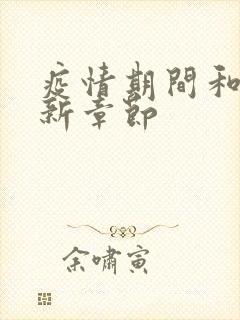 疫情期間和
新章節
余嘯寅